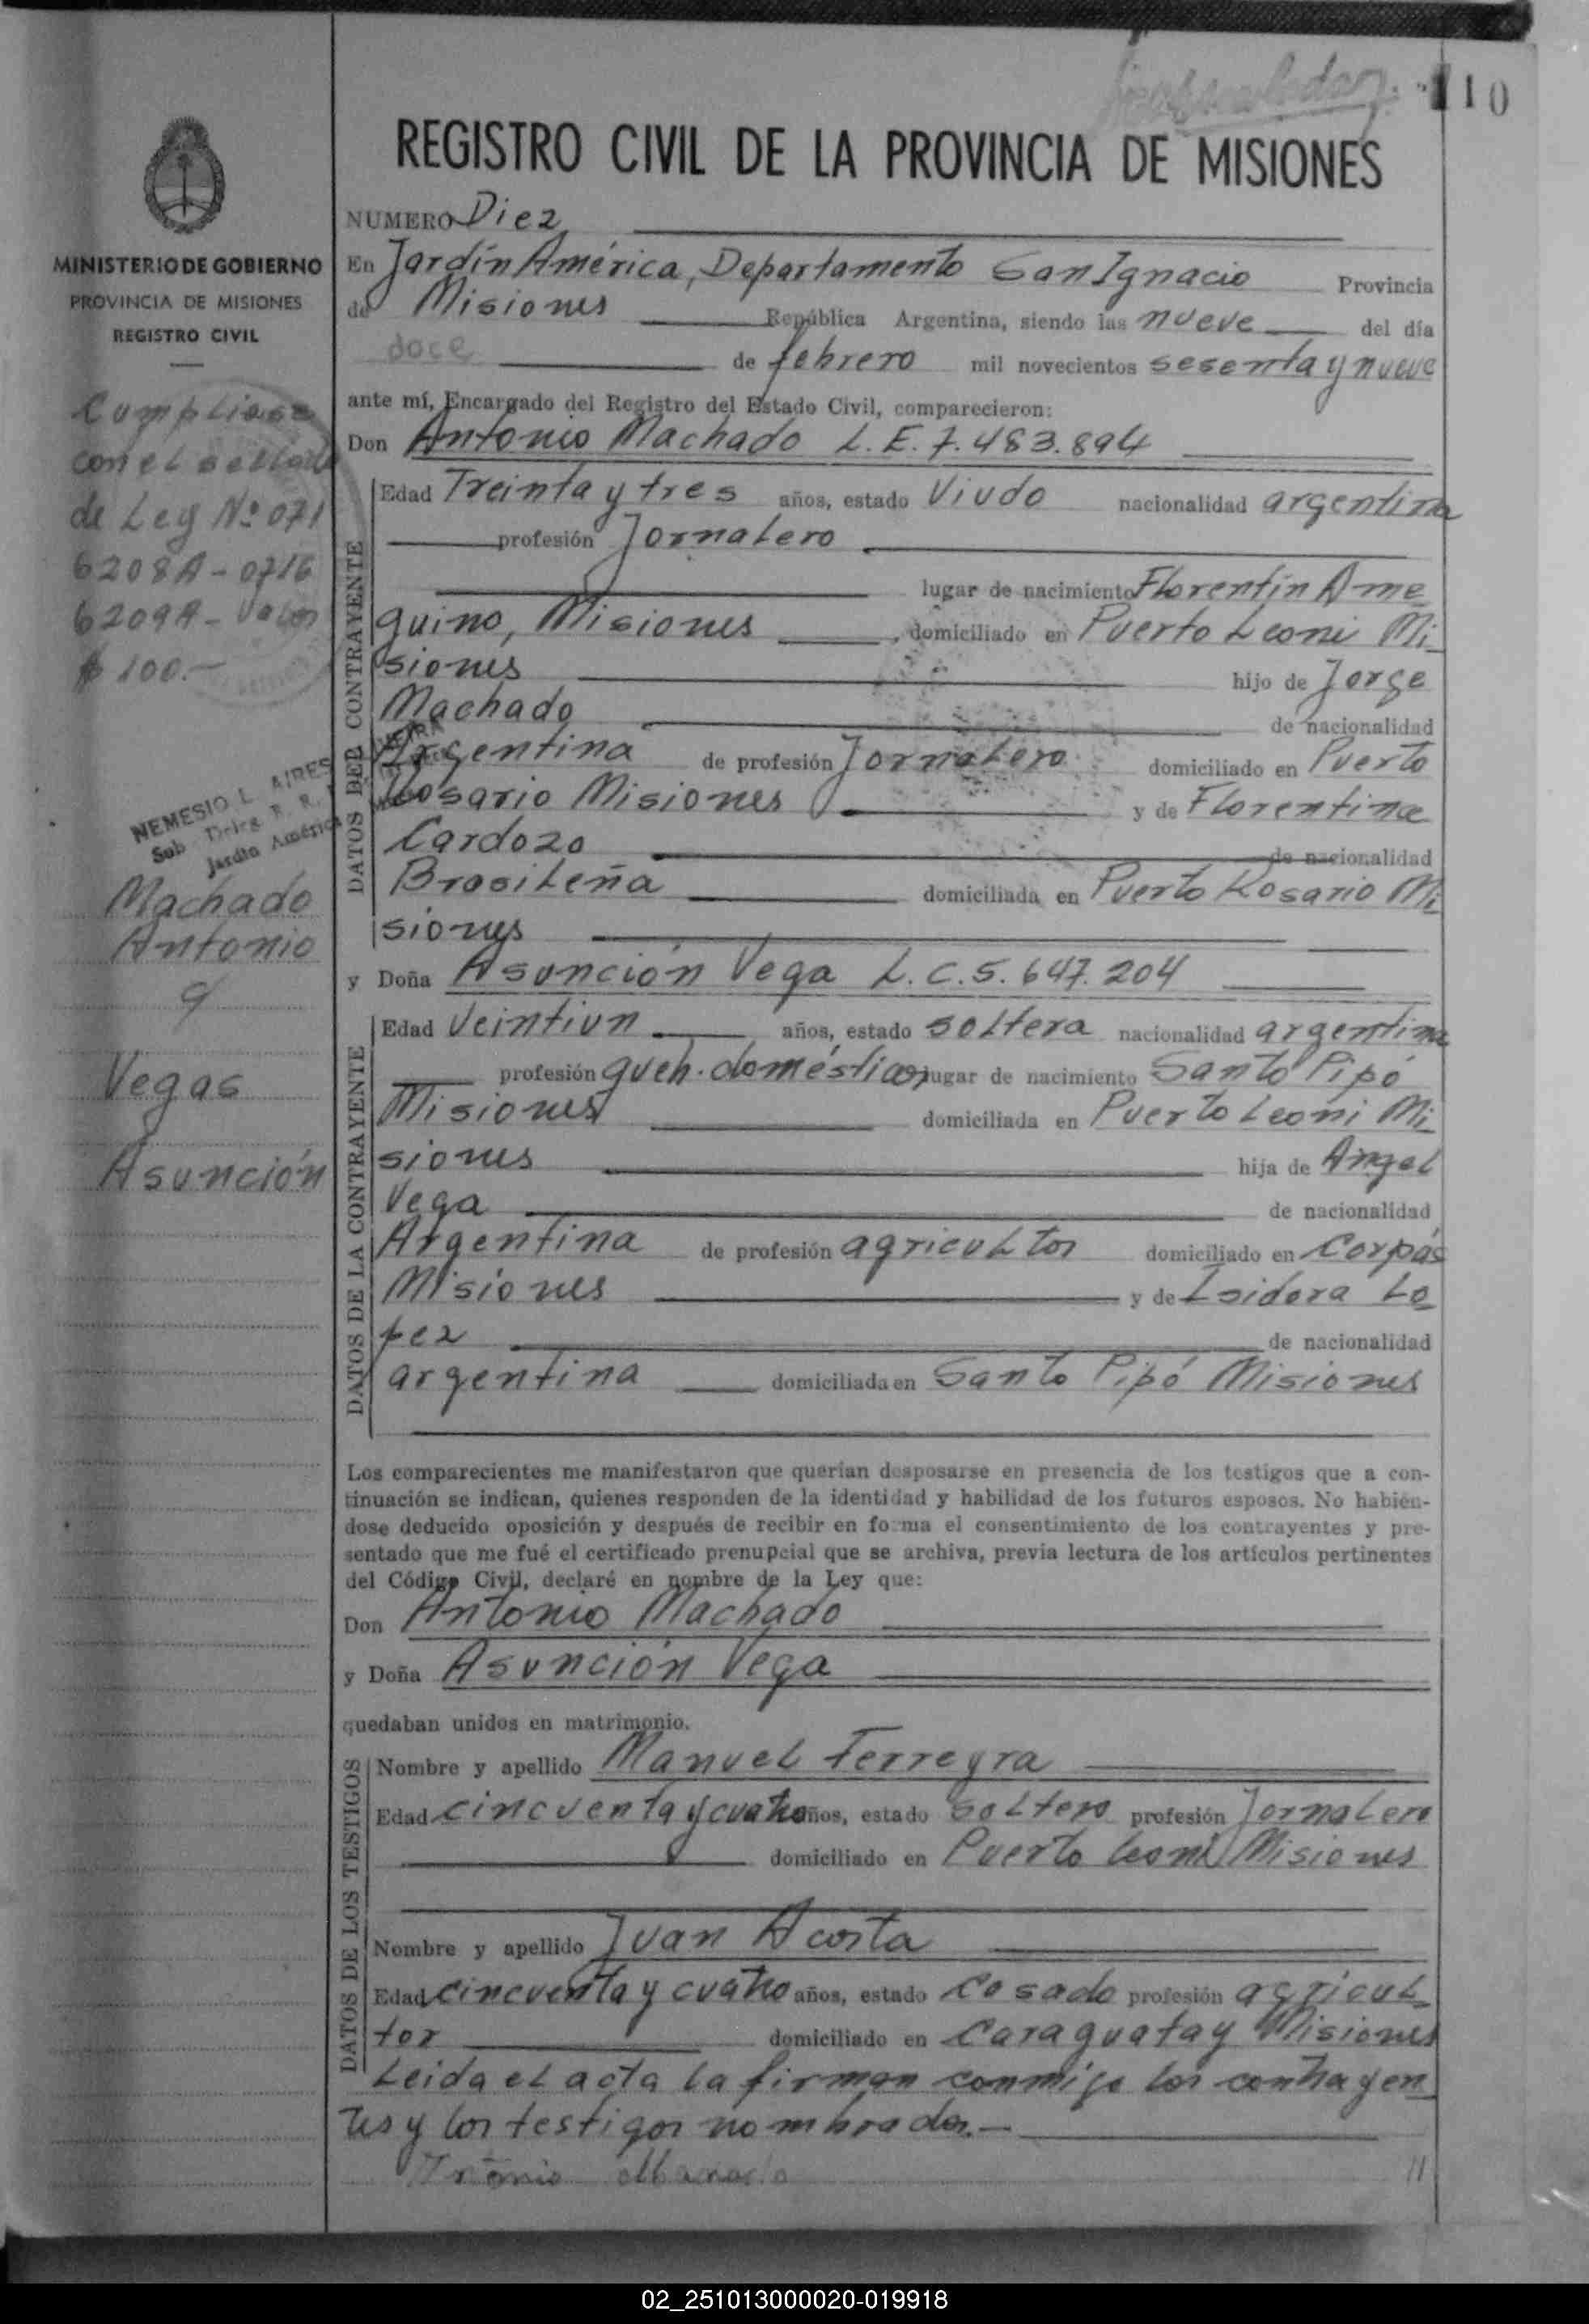 110
REGISTRO CIVIL DE LA PROVINCIA DE MISIONES
MINISTERIO DE GOBIERNO
PROVINCIA DE MISIONES
REGISTRO CIVIL
Cumpliose
con el sellado
de Ley Nº 071
6208A - 0716
6209A - Valor
$ 100.-
NEMESIO L. AIRES
Jardín América
Machado
Antonio
y
Vegas
Asunción
NUMERO Diez
En Jardín América, Departamento San Ignacio Provincia
de Misiones República Argentina, siendo las nueve del día
doce de febrero mil novecientos sesenta y nueve
ante mí, Encargado del Registro del Estado Civil, comparecieron:
Don Antonio Machado L.E. 7.483.894
DATOS DEL CONTRAYENTE
Edad Treinta y tres años, estado Viudo nacionalidad argentina
profesión Jornalero
lugar de nacimiento Florentín Ame
guino, Misiones, domiciliado en Puerto Leoni Mi
siones hijo de Jorge
Machado de nacionalidad
Argentina de profesión Jornalero domiciliado en Puerto
Rosario Misiones y de Florentina
Cardozo de nacionalidad
Brasileña domiciliada en Puerto Rosario Mi
siones
y Doña Asunción Vega L.C. 5.647.204
DATOS DE LA CONTRAYENTE
Edad Veintiun años, estado soltera nacionalidad argentina
profesión queh. domésticos lugar de nacimiento Santo Pipó
Misiones domiciliada en Puerto Leoni Mi
siones hija de Angel
Vega de nacionalidad
Argentina de profesión agricultor domiciliado en Corpus
Misiones y de Isidora Lo
pez de nacionalidad
argentina domiciliada en Santo Pipó Misiones
Los comparecientes me manifestaron que querían desposarse en presencia de los testigos que a con-
tinuación se indican, quienes responden de la identidad y habilidad de los futuros esposos. No habién-
dose deducido oposición y después de recibir en forma el consentimiento de los contrayentes y pre-
sentado que me fué el certificado prenupcial que se archiva, previa lectura de los artículos pertinentes
del Código Civil, declaré en nombre de la Ley que:
Don Antonio Machado
y Doña Asunción Vega
quedaban unidos en matrimonio.
DATOS DE LOS TESTIGOS
Nombre y apellido Manuel Ferreyra
Edad cincuenta y cuatro años, estado Soltero profesión Jornalero
domiciliado en Puerto Leoni Misiones
Nombre y apellido Juan Acosta
Edad cincuenta y cuatro años, estado Casado profesión agricul
tor domiciliado en Caraguatay Misiones
Leida el acta la firman conmigo los contrayen
tes y los testigos nombrados.-
02_251013000020-019918